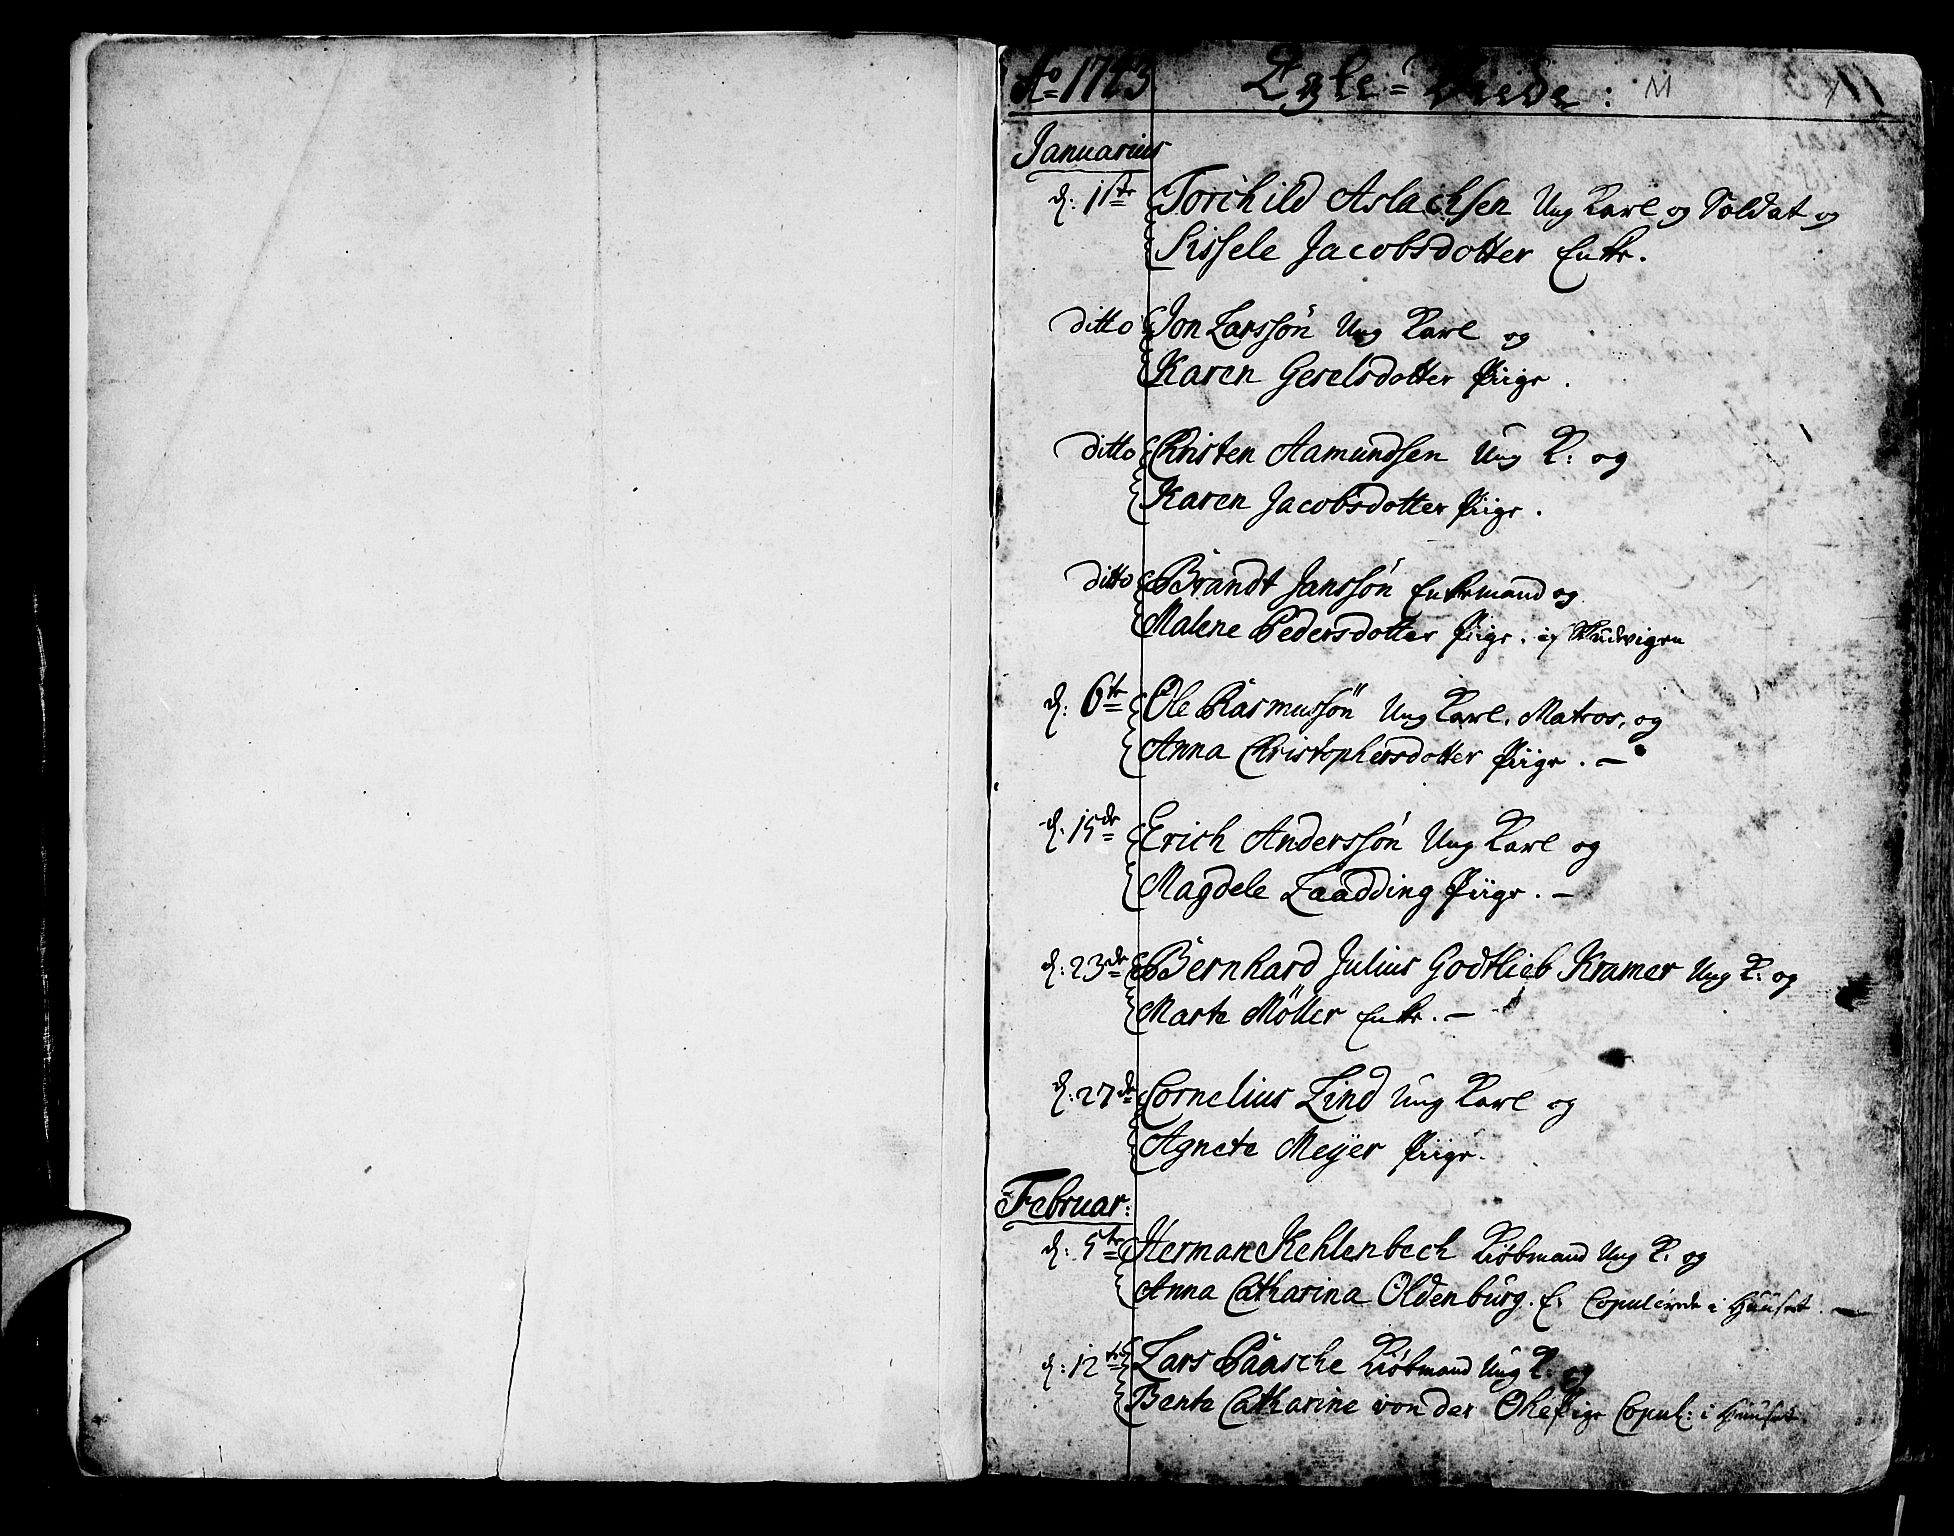 Ao 1743. Egte-Viede:
Januarius
d: 1ste Torchild Aslachsen Ung Karl og Soldat og
Sissele Jacobsdotter Enke.
ditto Jon Larssön Ung Karl og
Karen Gerelsdotter Piige.
ditto Christen Aamundsen Ung K: og
Karen Jacobsdotter Piige.
ditto Brandt Janssön Enkemand og
Malene Pedersdotter Piige.
d: 6te Ole Rasmussön Ung Karl. Matros, og
Anna Christophersdotter Piige. —
d: 15de Erich Anderssön Ung Karl og
Magdele Laadding Piige. —
d: 23de Bernhard Julius Godtlieb Kramer Ung K: og
Marte Möller Enke. —
d: 27de Cornelius Lind Ung Karl og
Agnete Meÿer Piige.
Februar:
d: 5te Herman Kehlenbech Kiöbmand Ung K. og
Anna Catharina Oldenburg. E. Copulerede i Huuset. —
d: 12te Lars Paasche Kiöbmand Ung K. og
Bente Catharine von der Ohe Pige Copul: i Huuset